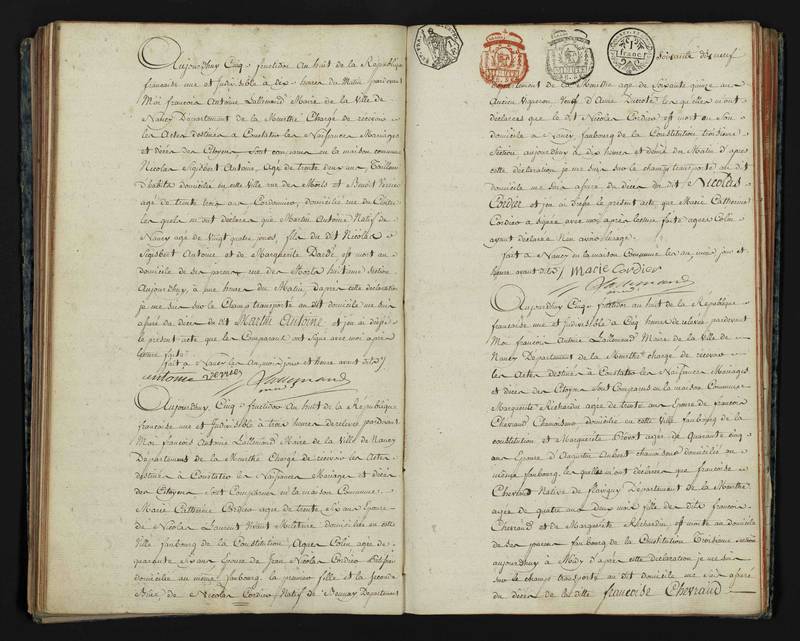 Aujourdhuy Cinq fructidor An huit de la République
francaise une et Indivisible à dix heures du Matin pardevant
Moi francois Antoine Lallemand Maire de la Ville de
Nancy Département de la Meurthe Chargé de recevoir
les Actes destinés à Constater les Naissances Mariages
et décès des Citoyens Sont comparus en la maison commune
Nicolas Sigisbert Antoine, Agé de trente deux ans Tailleur
D'habits domicilié en cette Ville rue des Morts et Benoit
agé de trente trois ans Cordonnier, domicilié rue du
les quels m'ont déclaré que Martin Antoine Natif de
Nancy agé de Vingt quatre jours, fils du dit Nicolas
Sigisbert Antoine et de Marguerite Dardé, est mort au
domicile de ses pères rue des Morts huitieme Section,
Aujourdhuy, à une heure du Matin, Daprès cette déclaration
je me suis sur le Champ transporté au dit domicile me suis
assuré du décès du dit Martin Antoine et j'en ai dréssé
le présent acte que les Comparants ont signé avec moi après
lecture faite
fait à Nancy les An mois jour et heure avant dits
antoine
Lallemand
Aujourdhuy Cinq fructidor An huit de la République
francaise une et Indivisible à trois heures de relevée pardevant
Moi francois Antoine Lallemand Maire de la Ville de Nancy
Departement de la Meurthe Chargé de recevoir les Actes
destinés à Constater les Naissances Mariages et décès
des Citoyens Sont Comparues en la maison Commune
Marie Catherine Cordier agée de trente Six ans Epouse
de Nicolas Laurent Militaire domiciliée en cette
Ville faubourg de la Constitution, Agnès Colin agée de
quarante Six ans Epouse de Jean Nicolas Cordier
domiciliée au même faubourg, la première fille et la seconde
Bru, de Nicolas Cordier, Natif de Département
1 franc
Soixante dix neuf
Département de la Moselle agé de Soixante quinze ans
Ancien Vigneron Veuf d'Anne les quelles m'ont
déclarées que le dit Nicolas Cordier est mort en Son
domicile à Nancy faubourg de la Constitution troisieme
Section aujourdhuy à dix heures et demie du Matin d'après
cette déclaration je me suis sur le champ transporté au dit
domicile me suis assuré du décès du dit Nicolas
Cordier et j'en ai dressé le présent acte que Marie Catherine
Cordier a signée avec moi après lecture faite agnès Colin
ayant déclaré n'en avoir l'usage
fait à Nancy en la maison Commune les an, mois jour et
heure avant dits Marie Cordier
Lallemand
Aujourdhuy Cinq fructidor an huit de la République
francaise une et Indivisible à Cinq heures de relevée pardevant
Moi francois Antoine Lallemand Maire de la Ville de
Nancy Departement de la Meurthe chargé de recevoir
les Actes destinés à Constater les Naissances Mariages
et décès des Citoyens Sont Comparues en la maison Commune
Marguerite Richardin agée de trente ans Epouse de francois
Chevraud domicilié en cette Ville faubourg de la
constitution et Marguerite agée de Quarante Cinq
ans Epouse d'Augustin Aubert domiciliée au
même faubourg, les quelles m'ont déclarées que francoise
Chevraud Native de flavigny Département de la Meurthe
agée de quatre ans deux mois fille des dits francois
Chevraud et de Marguerite Richardin, est morte au domicile
de ses pères faubourg de la Constitution Troisieme section
aujourdhuy à Midy d'après cette déclaration je me suis
sur le champ transporté au dit domicile me suis assuré
du décès de la ditte francoise Chevraud